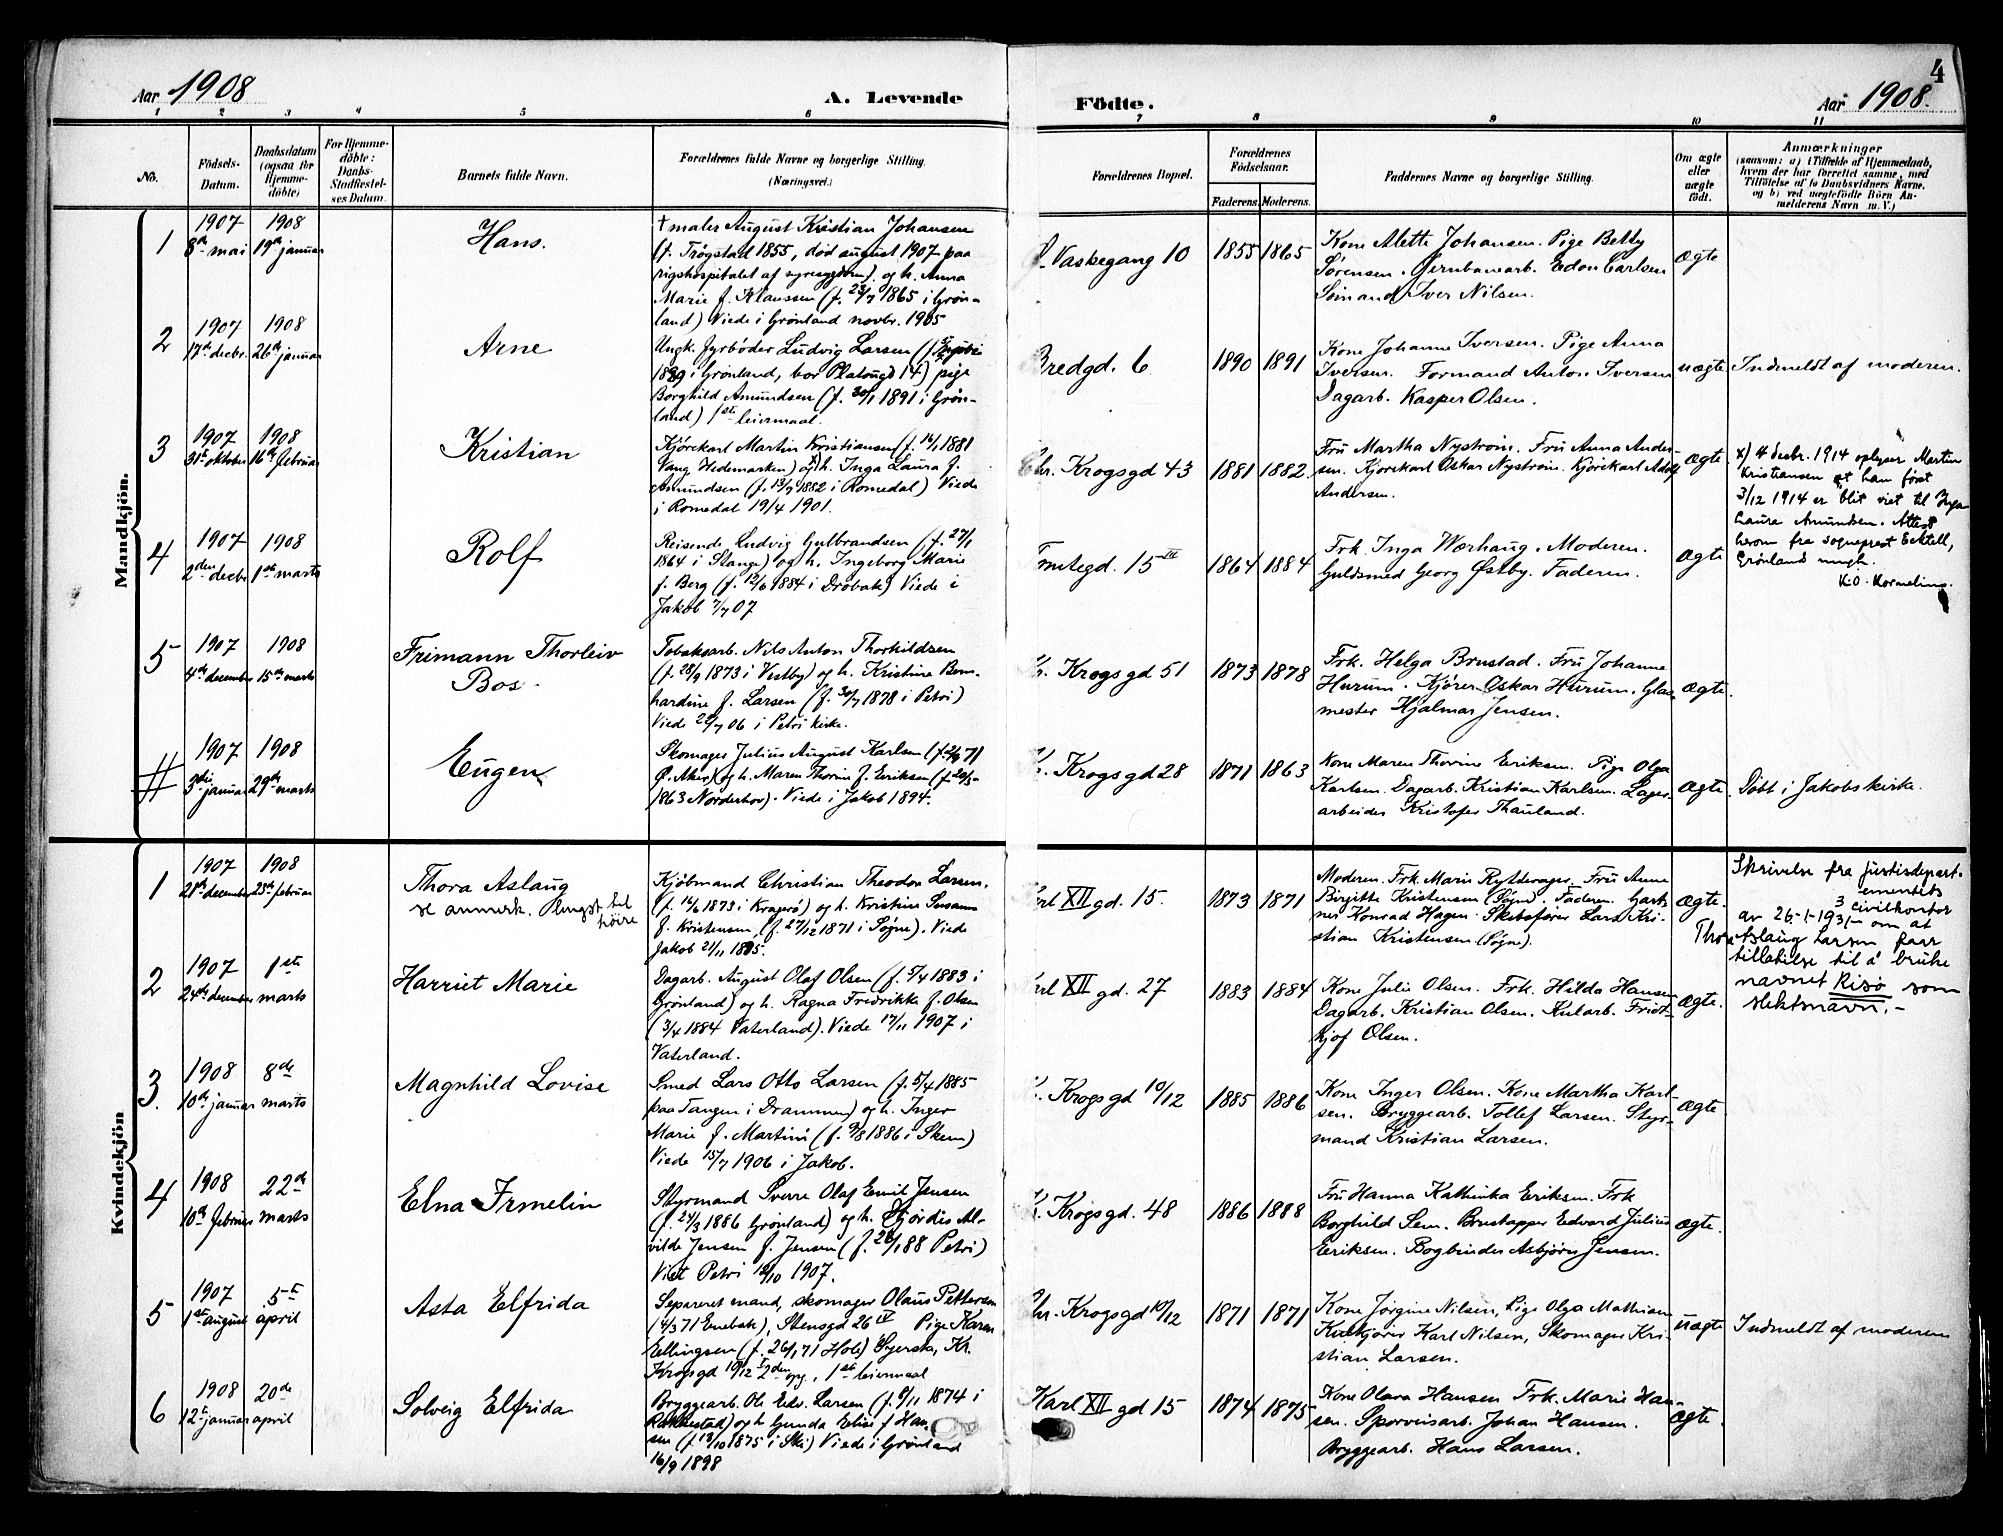 Aar 1908
A. Levende
Födte.
Aar 1908.
4
1 2 3 4 5 6 7 8 9 10 11
No.
Födsels-
Datum.
Daabsdatum
(ogsaa for
Hjemme-
döbte)
For Hjemme-
döbte:
Daabs-
Stadfæstel-
ses Datum.
Barnets fulde Navn.
Forældrenes fulde Navne og borgerlige Stilling.
(Næringsvei.)
Forældrenes Bopæl.
Forældrenes
Födselsaar.
Faderens. Moderens.
Faddernes Navne og borgerlige Stilling.
Om ægte
eller
uægte
födt.
Anmærkninger
(saasom: a) i Tilfælde af Hjemmedaab,
hvem der har forrettet samme, med
Tilföielse af to Daabsvidners Navne,
og b) ved uægtefödte Börn An-
melderens Navn m. V.)
Mandkjön.
1
1907
8de mai
1908
19de januar
Hans.
† maler August Kristian Johansen
(f. Trøgstad 1855, død august 1907 paa
rigshospitalet af syresygdom) og h. Anna
Marie f. Klaussen (f. 23/7 1865 i Grøn-
land) Viede i Grønland novbr. 1905
Vaskegang 10
1855 1865
Kone Alette Johansen. Pige Betty
Sørensen. Jernbanearb. Edon Carlsen
Sømand Iver Nilsen.
Ægte
2
1907
17de decbr.
1908
26de januar
Arne
Ungk. fyrbøder Ludvig Larsen
i Grønland, bor Platousgd 14) pige
Borghild Amundsen (f. 30/1 1891 i Grøn-
land) 1ste leiermaal.
Bredgd. 6
1890 1891
Kone Johanne Iversen. Pige Anna
Iversen. Formand Anton Iversen
Dagarb. Kasper Olsen.
uægte
Indmeldt af moderen.
3
1907
31te oktober
1908
16de februar
Kristian
Kjørekarl Martin Kristiansen (f. 14/1 1881
Vang Hedemarken) og h. Inga Laura f.
Amundsen (f. 13/7 1882 i Romedal) Viede
i Romedal 19/4 1901.
Chr. Krogsgd 43
1881 1882
Fru Martha Nystrøm. Fru Anna Ander-
sen. Kjørekarl Oskar Nystrøm. Kjørekarl Adolf
Andersen.
Ægte
x) 4 desbr. 1914 oplyser Martin
Kristiansen at han først
3/12 1914 er blit viet til Inga
Laura Amundsen. Attest
herom fra sogneprest
Grønland mngh.
K.O. Kornelius.
4
1907
2den decbr
1908
1ste marts
Rolf
Reisende Ludvig Gulbrandsen (f. 27/1
1864 i Stange) og h. Ingeborg Marie
f. Berg (f. 12/6 1884 i Drøbak) Viede i
Jakob 7/7 07
Tomtegd. 15 III
1864 1884
Frk. Inga Wærhaug. Moderen.
Guldsmed Georg Østby. Faderen.
Ægte
5
1907
4de december
1908
15de marts
Frimann Thorleiv
Bos
Tobaksarb. Nils Anton Thorkildsen
(f. 28/9 1873 i Vestby) og h. Kristine Bern-
hardine f. Larsen (f. 30/7 1878 i Petri)
Viede 22/7 06 i Petri kirke.
Chr. Krogsgd 51
1873 1878
Frk. Helga Brustad. Fru Johanne
Hurum. Kjører Oskar Hurum. Glas-
mester Hjalmar Jensen.
Ægte.
#
1907
3die januar
1908
29de marts
Eugen
Skomager Julius August Karlsen (f. 2/9 71
Ø. Aker) og h. Maren Thorine f. Eriksen (f. 20/5
1863 Norderhov). Viede i Jakob 1894.
Chr. Krogsgd 28
1871 1863
Kone Maren Thorine Eriksen. Pige Olga
Karlsen. Dagarb. Kristian Karlsen. Lager-
arbeider Kristofer Thauland.
Ægte
Døbt i Jakobs kirke.
Kvindekjön
1
1907
28de december
1908
23de februar
Thora Aslaug
se anmerk. til
höire
Kjøbmand Christian Theodor Larsen,
(f. 14/6 1873 i Kragerö) og h. Kristine Susanne
f. Kristensen, (f. 27/12 1871 i Søgne). Viede
Jakob 21/11 1895.
Karl XII gd. 15.
1873 1871
Moderen. Frk. Marie Rytterager. Fru Anna
Birgitte Kristensen (Søgne). Faderen. Gart-
ner Konrad Hagen. Skibsfører Lars Kri-
stian Kristensen (Søgne).
Ægte.
Skrivelse fra justisdepart-
ementets
3 civilkontor
av 26-1-1931 om at
Thora Aslaug Larsen faar
tillatelse til å bruke
navnet Risö som
slektsnavn.-
2
1907
24de december
1ste
marts
Harriet Marie
Dagarb. August Olaf Olsen (f. 5/4 1883 i
Grønland) og h. Ragna Fredrikke f. Olsen
(3/4 1884 Vaterland). Viede 17/11 1907 i
Vaterland.
Karl XII gd. 27
1883 1884
Kone Julie Olsen. Frk. Hilda Hansen
Dagarb. Kristian Olsen. Kularb. Fridt-
hjof Olsen.
Ægte.
3.
1908
10de januar
8de
marts
Magnhild Lovise
Smed Lars Otto Larsen (f. 5/4 1885
paa Tangen i Drammen) og h. Inger
Marie f. Martini (f. 9/8 1886 i Skien)
Viede 15/7 1906 i Jakob.
Krogsgd 10/12
1885 1886
Kone Inger Olsen. Kone Martha Karl-
sen. Bryggearb. Tollef Larsen. Styr-
mand Kristian Larsen.
Ægte
4
1908
10de februar
22de
marts
Elna Irmelin
Styrmand Sverre Olaf Emil Jensen
(f. 24/3 1886 Grønland) og h. Hjørdis Al-
vilde Jensen f. Jensen (f. 28/1 88 Petri)
Viet Petri 12/10 1907.
Krogsgd. 48
1886 1888
Fru Hanna Kathinka Eriksen. Frk
Borghild Sem. Brustapper Edvard Julius
Eriksen. Bogbinder Asbjørn Jensen.
Ægte
5
1907
1ste august
5te
april
Asta Elfrida
Separeret mand, skomager Olaus Pettersen
(4/3 71 Enebak), Stensgd 26 IV Pige Karen
Ellingsen (f. 26/1 71 Hole) Syerske, Kr.
Krogsgd 10/12 I 2den opg., 1ste leiermaal
Chr. Krogsgd 10/12
1871 1871
Kone Jørgine Nilsen, Pige Olga Mathisen
Kulkjører Karl Nilsen, Skomager Kri-
stian Larsen.
uægte
Indmeldt af moderen
6
1908
12te januar
20de
april
Solveig Elfrida
Bryggearb. Ole Edv. Larsen (f. 9/11 1874 i
Rakkestad) og h. Gunda Elise f Han-
sen (f. 13/10 1875 i Ski) Viede i Grønland
16/9 1898
Karl XII gd 15
1874 1875
Kone Olava Hansen Frk. Marie Han-
sen. Sporveisarb. Johan Hansen.
Bryggearb. Hans Larsen.
Ægte.